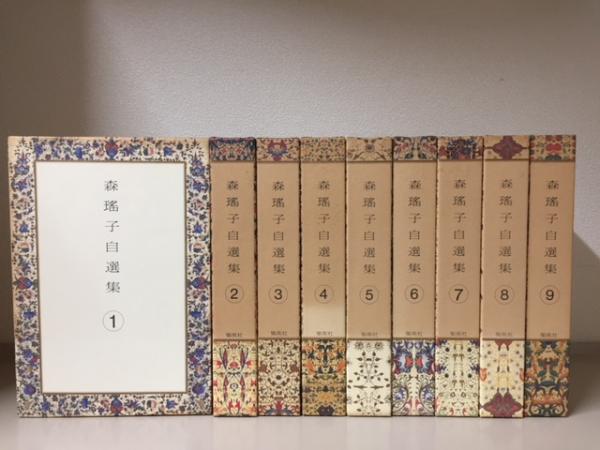 森瑤子自選集
①
森瑤子自選集
②
集英社
森瑤子自選集
③
集英社
森瑤子自選集
④
集英社
森瑤子自選集
⑤
集英社
森瑤子自選集
⑥
集英社
森瑤子自選集
⑦
集英社
森瑤子自選集
⑧
集英社
森瑤子自選集
⑨
集英社